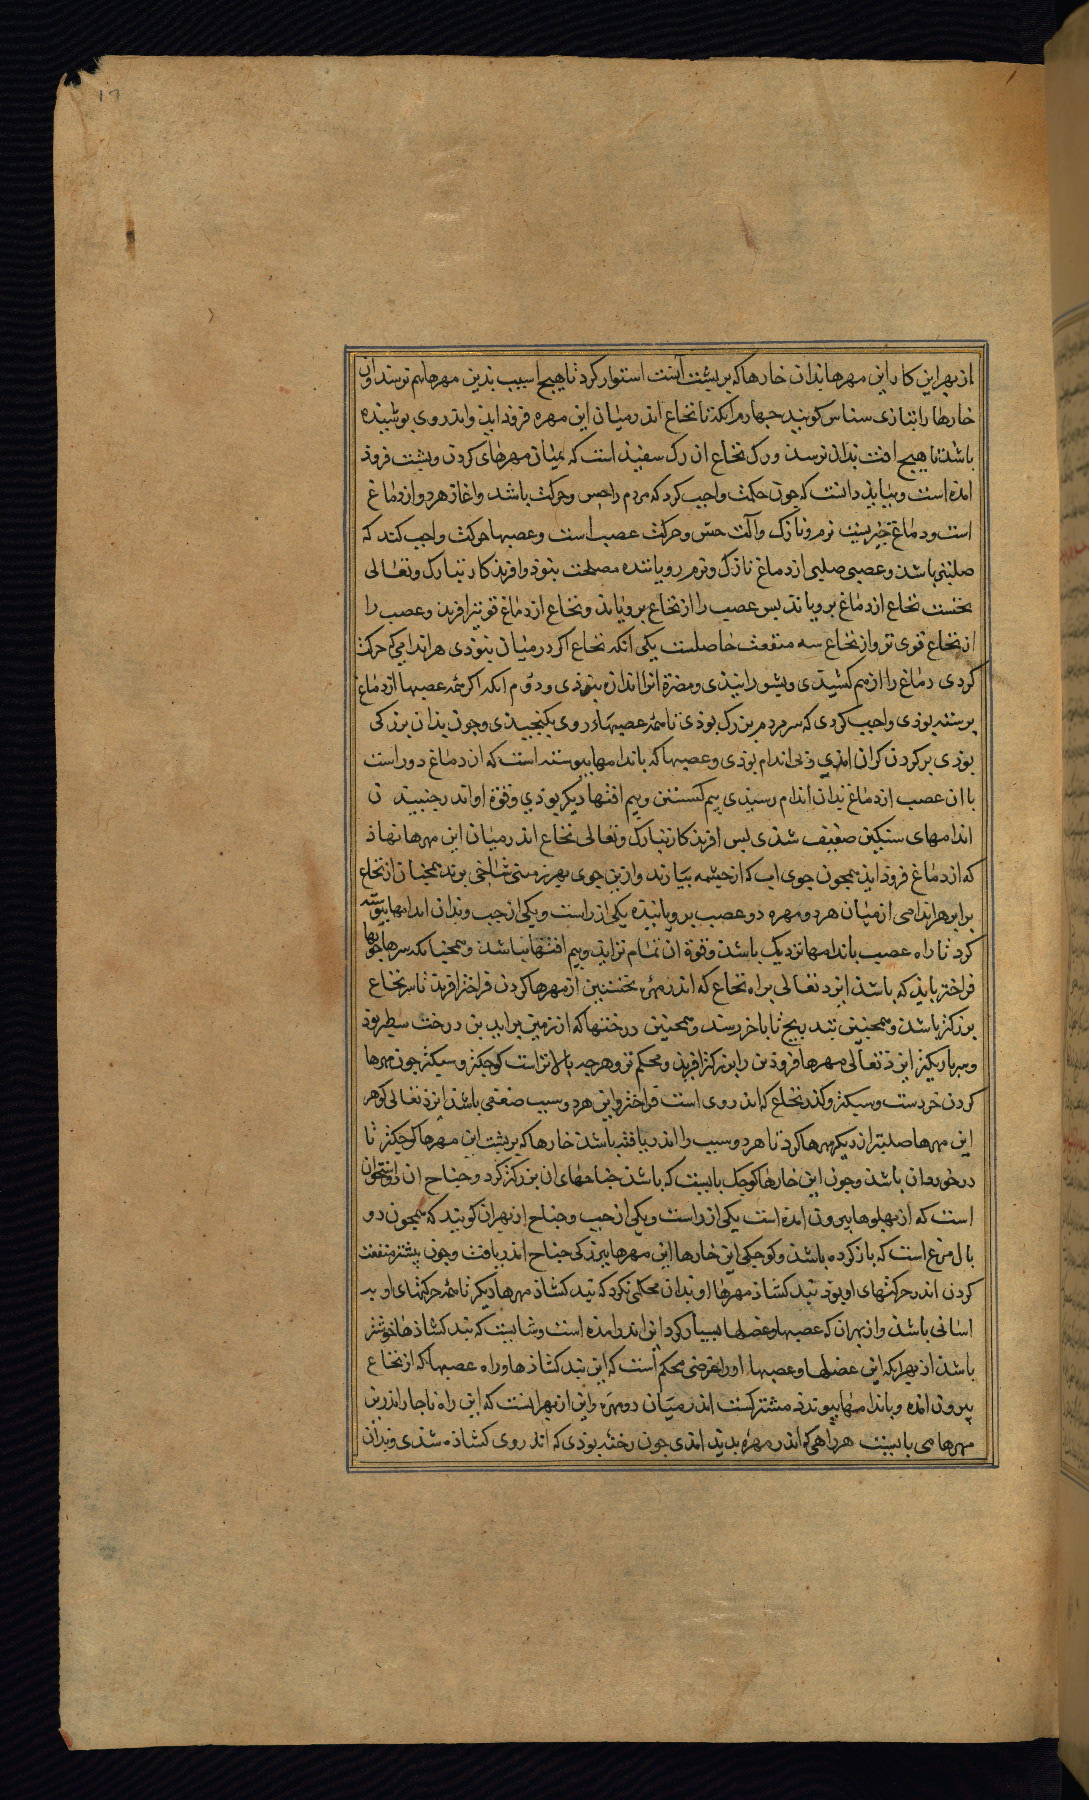 از بهر این کار این مهرها بدان خارها که بر پشت آنست استوار کرد تا هیچ اسیب بدین مهرها هم نرسد و این
خارها را بتازی سناسن کویند چهارم انکه تا نخاع اندر میان این مهره فروذ اید و اندروی بوشیده
باشد تا هیچ افت بدان نرسد و رک نخاع ان رک سفید است که بمیان مهرهای کردن و پشت فروذ
امده است و ببایذ دانست که چون حکمت واجب کرد که مردم را حس و حرکت باشد و اغاز هر دو از دماغ
است و دماغ چیزیست نرم و نازک و آلت حس و حرکت عصب است و عصبها حرکت واجب کند که
صلبتر باشد و عصبی صلبی از دماغ نازک و نرم رویاننده مصلحت نبوذ و افریذکار تبارک و تعالی
نخست نخاع از دماغ برویانذ بس عصب را از نخاع برویانذ و نخاع از دماغ قویتر افرید و عصب را
از نخاع قوی تر و از نخاع سه منفعت حاصلست یکی انکه نخاع اکر در میان نبوذی هر اندامی که حرکت
کردی دماغ را از هم کشیذی و بشورانیذی و مضرة انرا اندازه نبوذی و دوم انکه اکر همه عصبها از دماغ
برسته بوذی واجب کردی که سر مردم بزرک بوذی تا همه عصبها در وی بکنجیذی و چون بذان بزرکی
بوذی بر کردن کران امذی و بی اندام بوذی و عصبها که باندامها پیوسته است که از دماغ دور است
با ان عصب از دماغ بذان اندام رسیذی بیم کسستن و بیم افتها دیکر بوذی و قوة او اندر جنبیذن
اندامهای سنکین ضعیف شذی بس افریذکار تبارک و تعالی نخاع اندر میان این مهرها نهاذ
که از دماغ فروذ ایذ همچون جوی اب که از چشمه بیارند و ازین جوی بهر زمینی شاخی برند همچنان از نخاع
برابر هر اندامی از میان هر دو مهره دو عصب برویانیذه یکی از راست و یکی از چب و بدان اندامها پیوسته
کرد تا راه عصب باندامها نزدیک باشد و قوة ان تمام تر ایذ و بیم افتها نباشد و همچنانکه سرها جویها
فراختر بایذ که باشد ایزد تعالی براه نخاع که اندر مهره نخستین از مهرها کردن فراختر افرید تا سر نخاع
بزرکتر باشد و همچنین بتدریج تا باخر رسد و همچنین درختها که از زمین برایذ بن درخت سطبر بوذ
و سر باریکتر ایزد تعالی مهرها فروذین را بزرکتر افرید و محکم تر و هرچه بالاتر است کوچکتر و سبکتر چون مهرها
کردن خردست و سبکتر و کذر نخاع که اندر وی است فراختر و این هر دو سبب ضعفی باشد ایزد تعالی کوهر
این مهرها صلبتر از دیکر مهرها کرد تا هر دو سبب را اندر یافته باشد خارها که بر پشت این مهرها کوچکتر تا
درخور ان باشد و چون این خارها کوچک بایست که باشد جناحهای ان بزرکتر کرد و جناح ان دو استخوان
است که از پهلوها بیرون امده است یکی از راست و یکی از چب و جناح از بهر ان کویند که همچون دو
بال مرغ است که باز کرده باشد و کوچکی این خارها این مهرها ببزرکی جناح اندر یافت و چون بیشتر منفعت
کردن اندر حرکتهای او بوذ بند کشاذ مهرها او بدان محکمی نکرد که بند کشاذ مهرها دیکر تا همه حرکتهای او بر
اسانی باشد و از بهر ان که عصبها و عضلها بسیار کرد این اندر امده است و شایست که بند کشاذ ها خوشتر
باشد از بهر انکه این عضلها و عصبها او را عوضی محکم است که این بند کشاذ ها و راه عصبها که از نخاع
بیرون امده و باندامها پیوندد مشترکست اندر میان دو مهره و این از بهر انست که این راه ناچار اندرین
مهرها می بایست هر راهی که اندر مهره بدید امذی چون رخنه بوذی که اندر وی کشاذه شذی و بدان